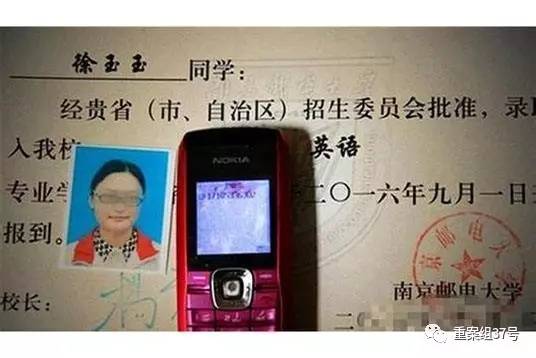 徐玉玉 同学：
经贵省（市、自治区）招生委员会批准，录
入我校 英语
专业学 二〇一六年九月一日
报到。
NOKIA
南京邮电大学
校长： 南京邮电大学
二〇
重案组37号